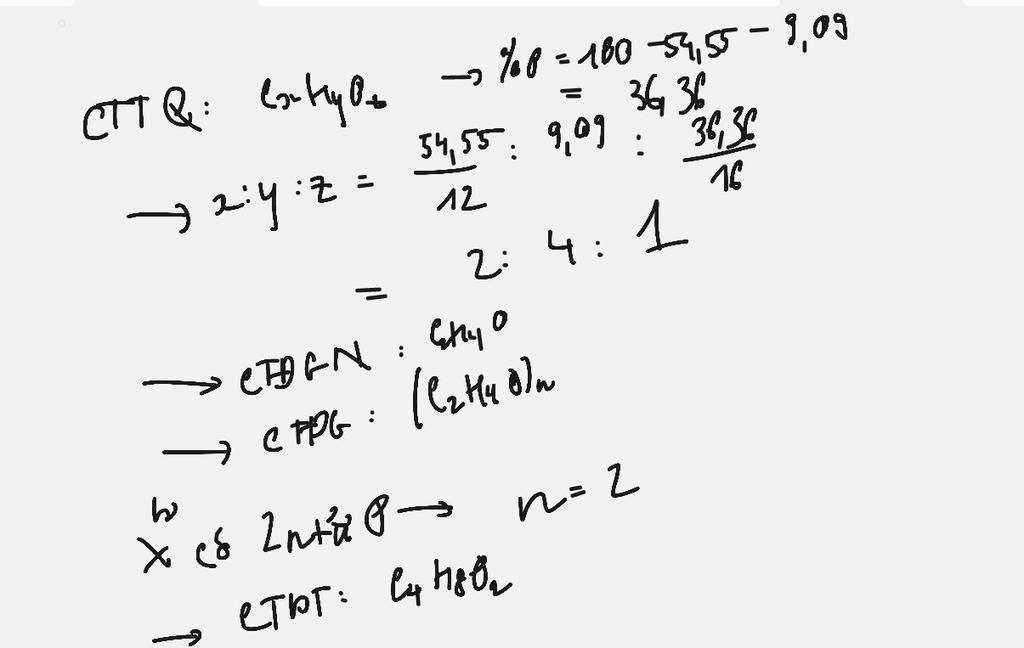 CTTQ: CxHyOz → %O = 100 - 54,55 - 9,09
= 36,36
→ x:y:z = 54,55/12 : 9,09 : 36,36/16
= 2: 4: 1
→ CTĐGN : C2H4O
→ CTPG : (C2H4O)n
X có 2 ntử O → n = 2
→ CTPT: C4H8O2